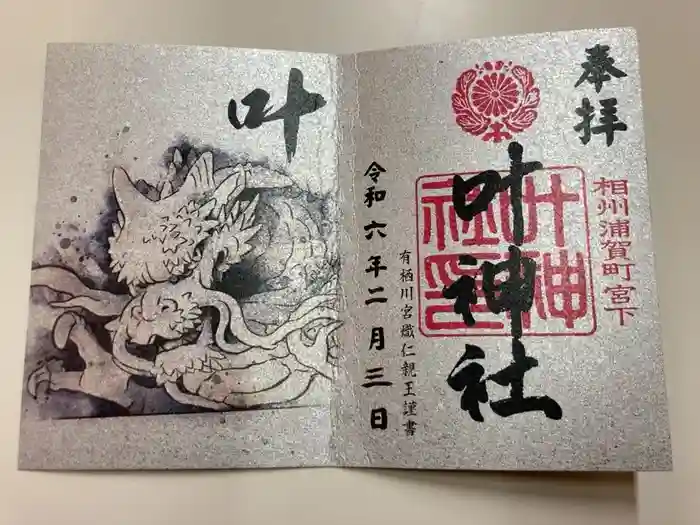 奉拝
相州浦賀町宮下
叶神社
叶神社印
有栖川宮熾仁親王謹書
令和六年二月三日
叶